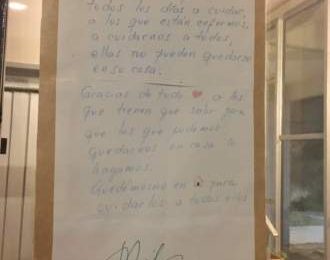 todos los días a cuidar,
a los que están enfermos,
a cuidarnos a todos,
ellas no pueden quedarse
en su casa.
Gracias de todo ❤ a los
que tienen que salir para
que los que podemos
quedarnos en casa lo
hagamos.
Quedémosno en 🏠 para
cuidarlos a todos ellos